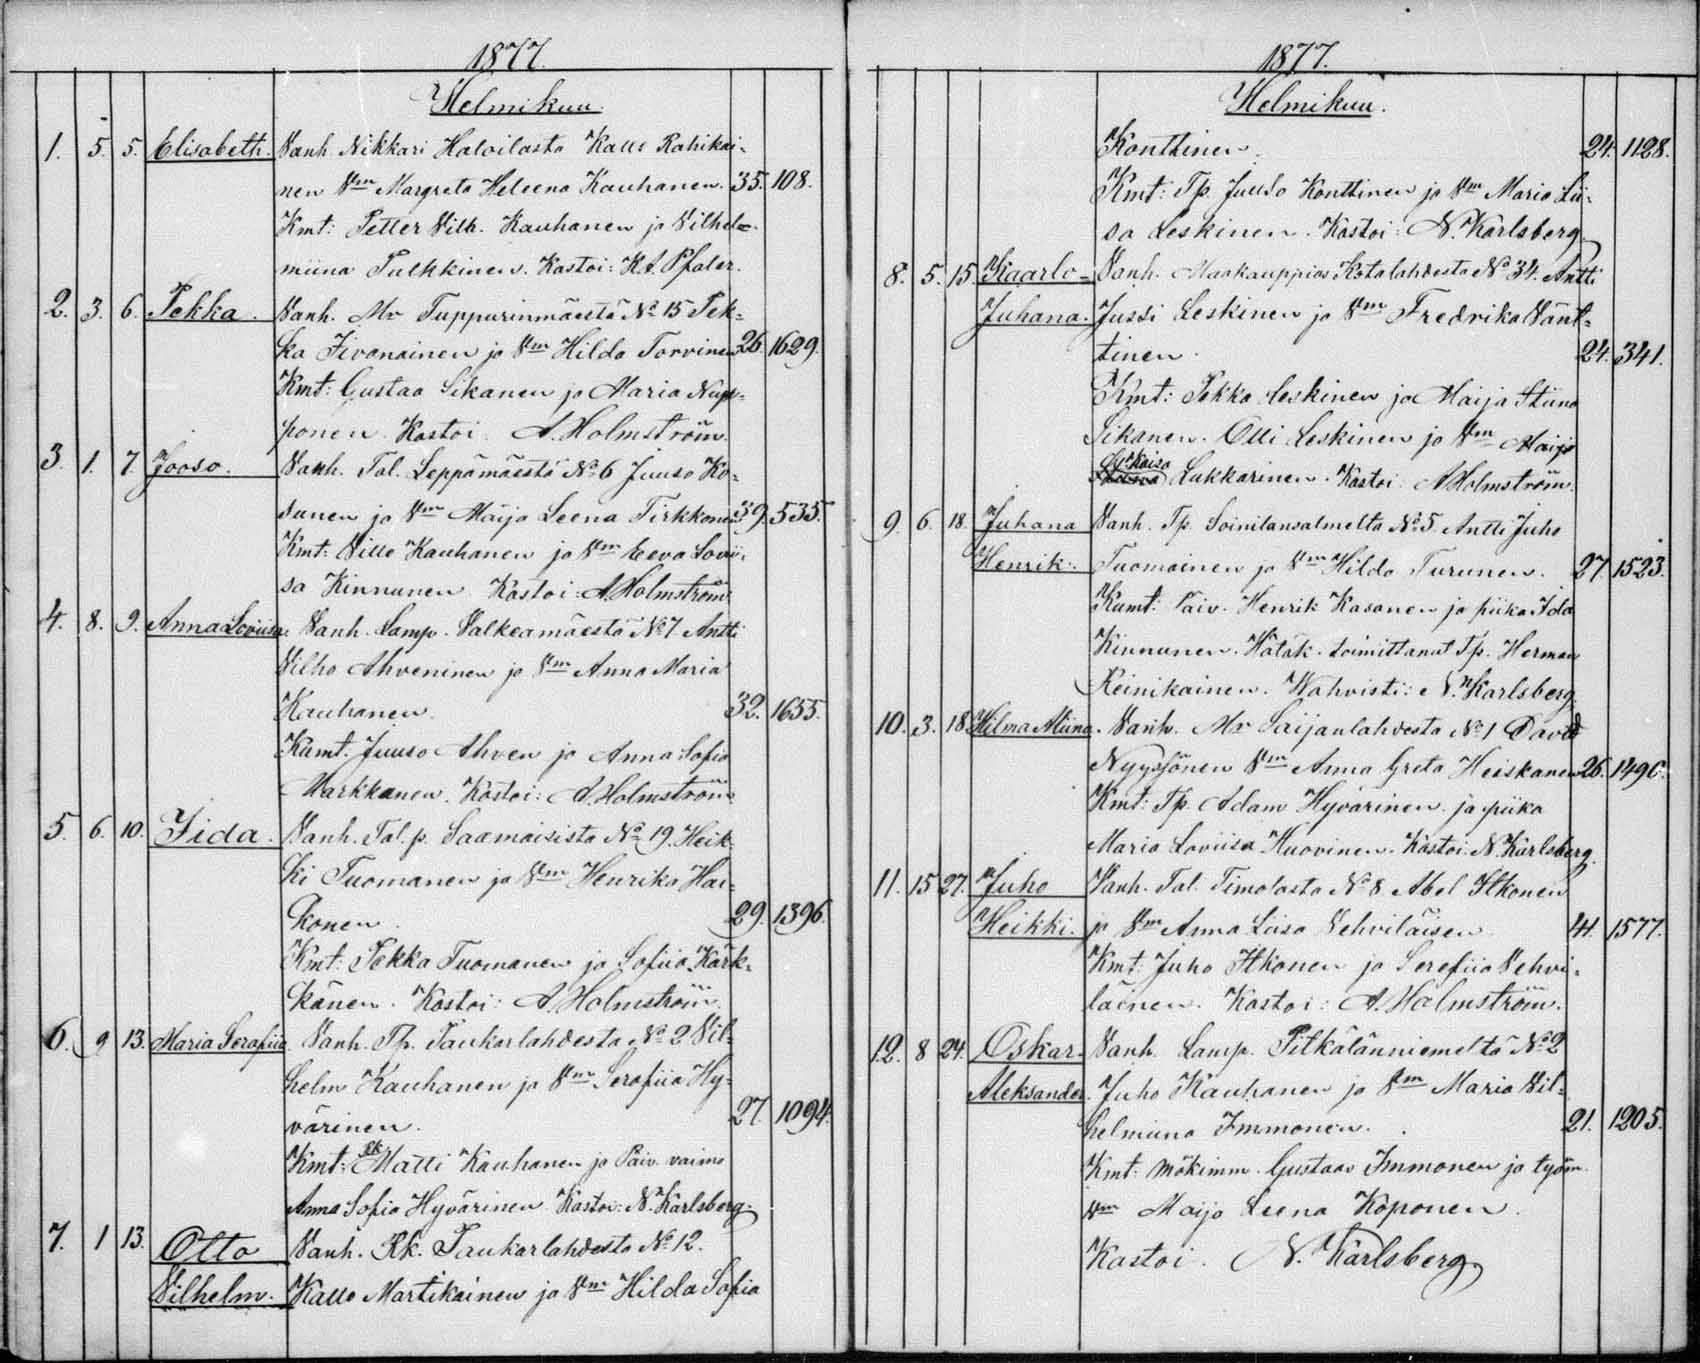 1877.
Helmikuu.
1. 5. 5. Elisabeth. Vanh. Nikkari Haloilasta Kalle Rahikai-
nen Vm Margreta Heleena Kauhanen. 35. 108.
Kmt: Petter Vilh. Kauhanen ja Vilhel-
miina Pulkkinen. Kastoi: K.A. Pfaler.
2. 3. 6. Pekka. Vanh. Mr Tuppurinmäestä No 15 Pek-
ka Iivanainen ja Vm Hilda Torvinen 26. 1629.
Kmt: Gustaa Sikanen ja Maria Nup-
ponen. Kastoi. A. Holmström.
3. 1. 7. Jooso. Vanh. Tal. Leppämäestä No 6 Juuso Ko-
sunen ja Vm Maija Leena Tirkkonen 39. 535.
Kmt: Ville Kauhanen ja Vm Eeva Lovii-
sa Kinnunen. Kastoi: A. Holmström
4. 8. 9. Anna Loviisa. Vanh. Lamp. Valkeamäestä No 7. Antti
Vilho Ahveninen ja Vm Anna Maria
Kauhanen. 32. 1655.
Kumt. Juuso Ahven ja Anna Sofia
Markkanen. Kastoi: A. Holmström
5. 6. 10. Iida. Vanh. Tal. p. Saamaisista No 19. Heik-
ki Tuomanen ja Vm Henrika Haa-
konen. 29. 1396.
Kmt: Pekka Tuomanen ja Sofiia Kärk-
känen. Kastoi: A. Holmström.
6. 9 13. Maria Serafiia. Vanh. Tp. Paukarlahdesta No 2 Vil-
helm Kauhanen ja Vm Serafiia Hy-
värinen. 27. 1094.
Kmt: Rk Matti Kauhanen ja Päiv. vaimo
Anna Sofia Hyvärinen. Kastoi: N. Karlsberg.
7. 1 13. Otto Vanh. Rk. Paukarlahdesta No 12.
Vilhelm. Kalle Martikainen ja Vm Hilda Sofia
1877.
Helmikuu.
Konttinen. 24. 1128.
Kmt: Tp. Juuso Konttinen ja Vm Maria Lii-
sa Leskinen. Kastoi: N. Karlsberg.
8. 5. 15. Kaarlo- Vanh. Maakauppias Kotalahdesta No 34. Antti
Juhana. Jussi Leskinen ja Vm Fredrika Vänt-
tinen. 24. 341.
Kmt: Pekka Leskinen ja Maija Stiina
Sikanen. Olli Leskinen ja Vm Maija
Kaisa Lukkarinen. Kastoi. A Holmström.
9. 6. 18. Juhana Vanh. Tp. Soinilansalmelta No 5. Antti Juho
Henrik. Tuomainen ja Vm Hilda Turunen. 27. 1523.
Kumt: Päiv. Henrik Kasanen ja piika Ida
Kinnunen. Hätäk. toimittanut Tp. Herman
Reinikainen. Wahvisti: N. Karlsberg.
10. 3. 18. Hilma Miina. Vanh. Mr Saijanlahdesta No 1 David
Nyyssönen Vm Anna Greta Heiskanen 26. 1490.
Kmt: Tp. Adam Hyvärinen ja piika
Maria Loviisa Huovinen. Kastoi. N. Karlsberg.
11. 15 27. Juho Vanh. Tal. Timolasta No 8. Abel Itkonen
Heikki. ja Vm Anna Liisa Vehviläisen 41. 1577.
Kmt: Juho Itkonen ja Serefiia Vehvi-
läinen. Kastoi: A. Holmström.
12. 8 24. Oskar. Vanh. Lamp. Pitkälänniemeltä No 2
Aleksander. Juho Kauhanen ja Vm Maria Vil-
helmiina Immonen. 21. 1205.
Kmt: mökinm. Gustaav Immonen ja työm.
Vm Maija Leena Koponen.
Kastoi. N. Karlsberg.